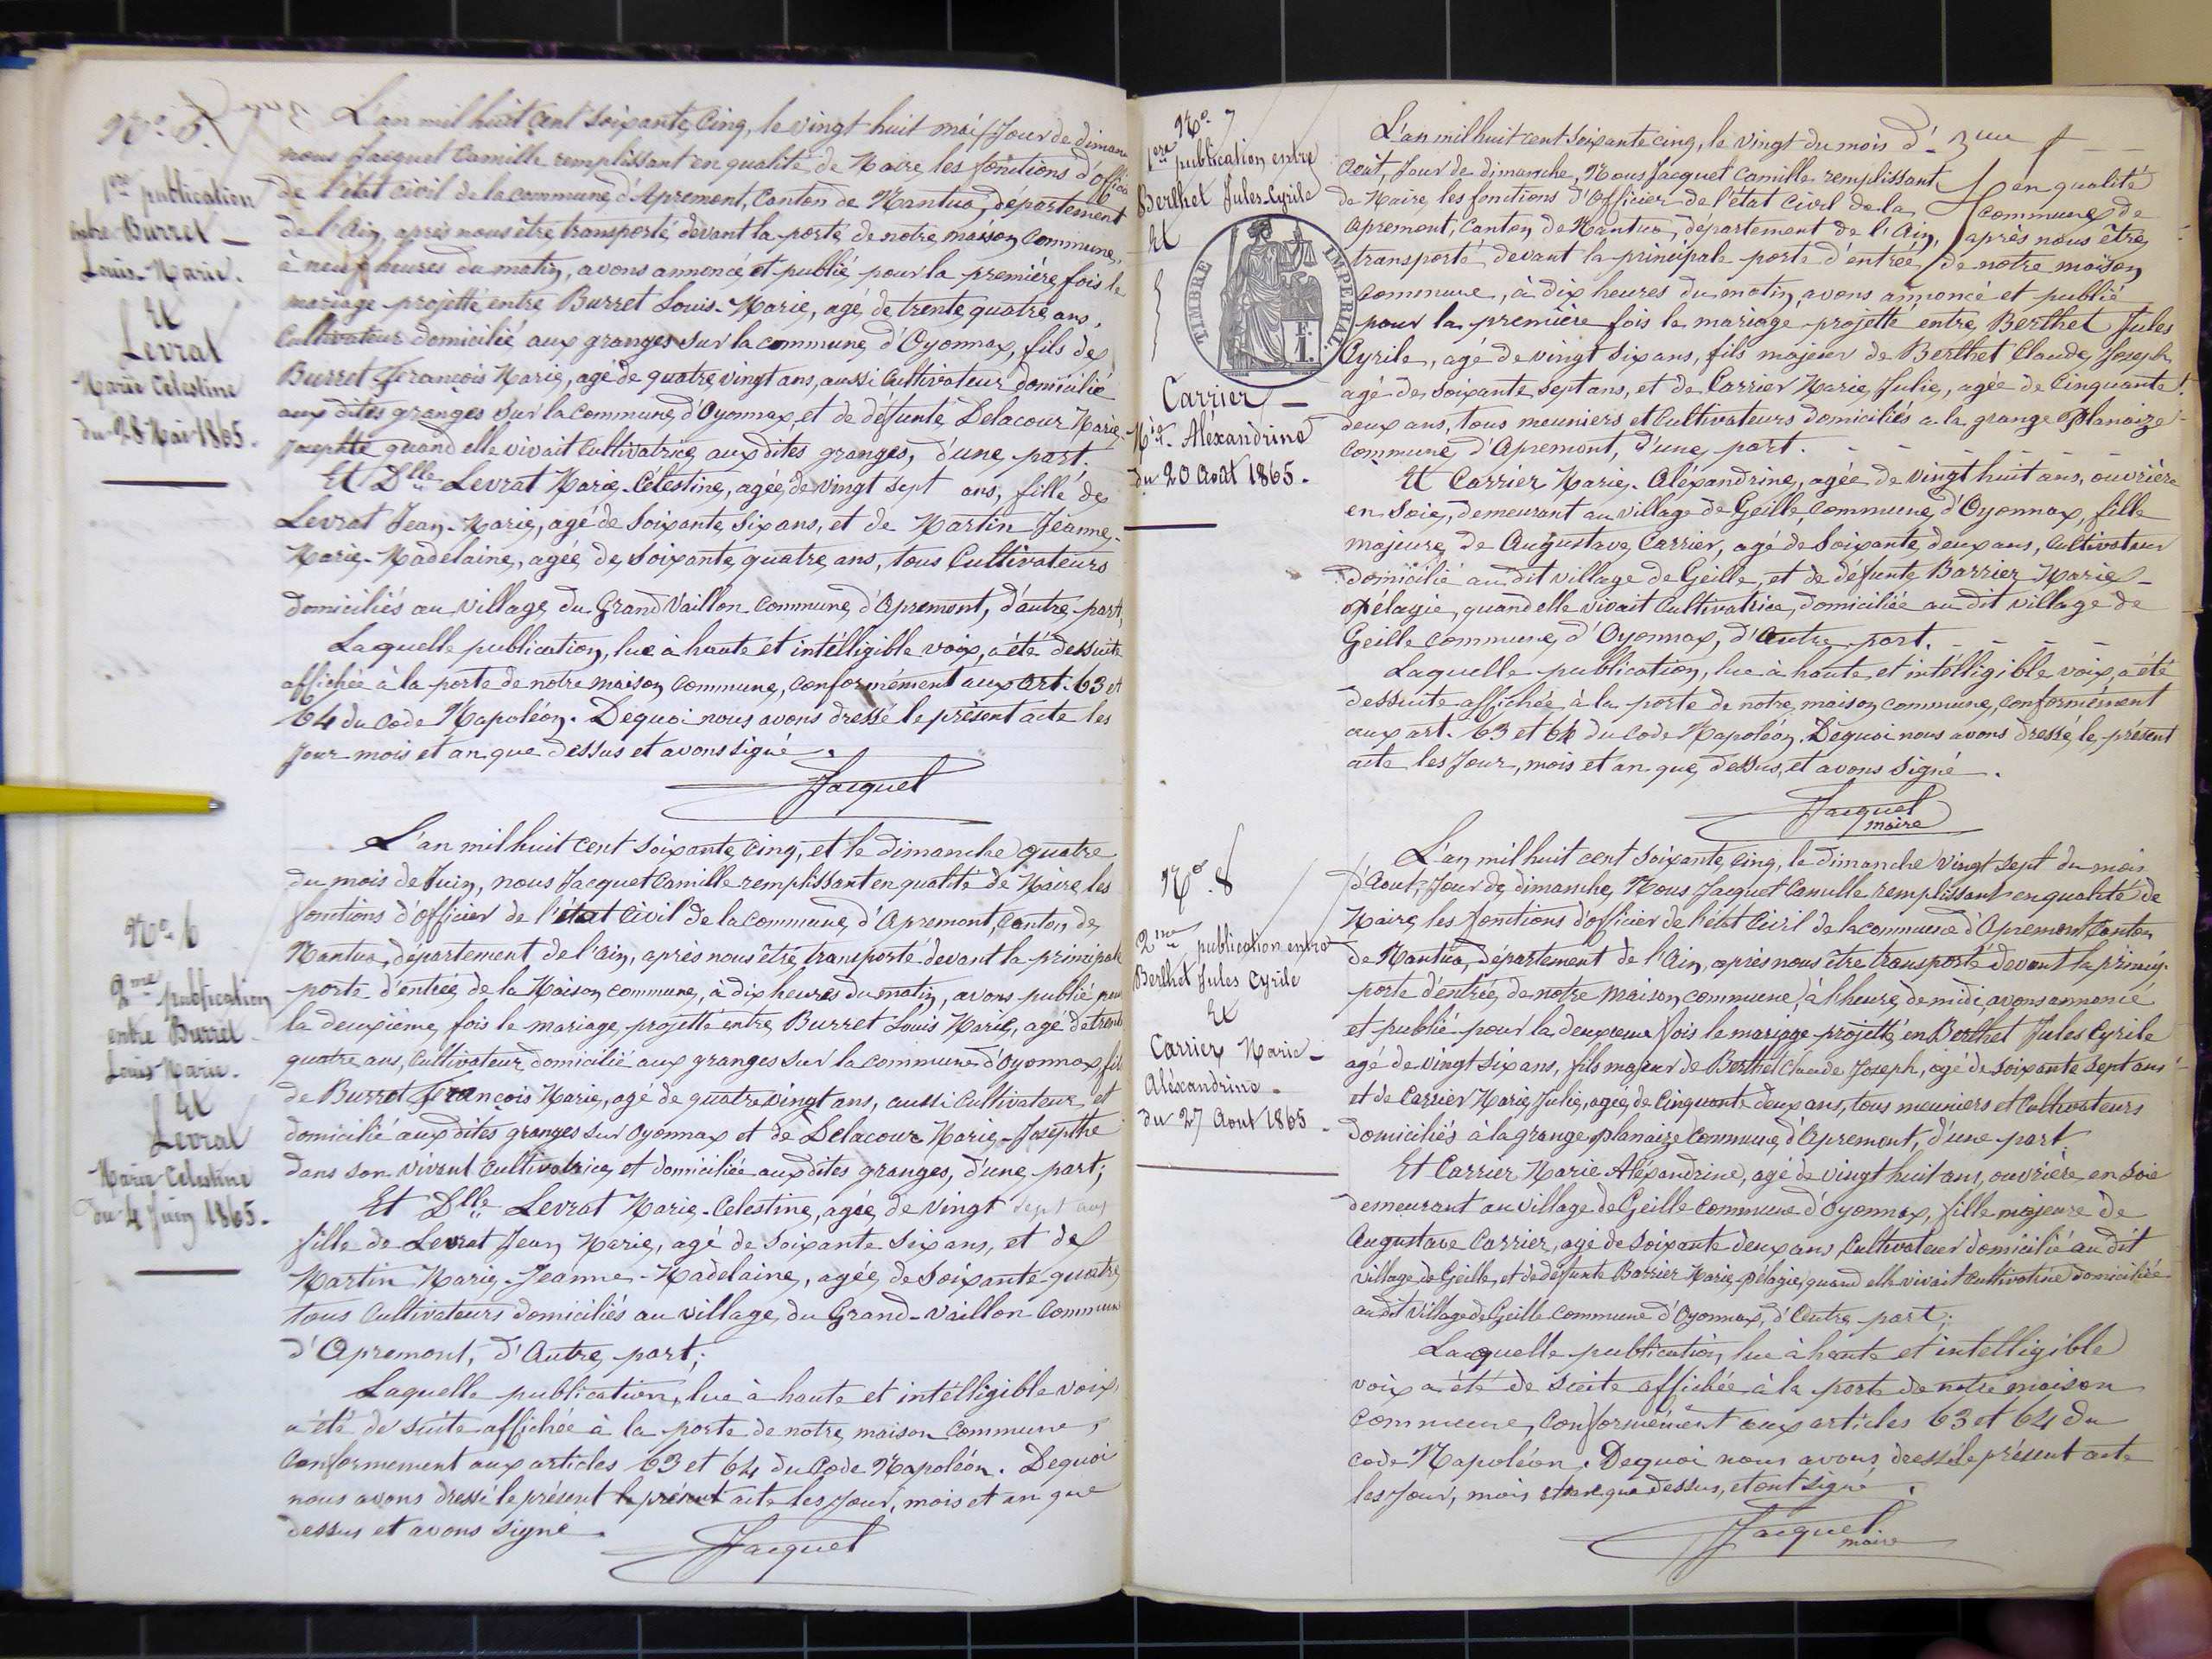 N.o 5.
1ere publication
entre Burret
Louis-Marie.
Et
Levrat
Marie Celestine
du 28 Mai 1865.
L'an mil huit cent soixante cinq, le vingt huit mai, Jour de diman
nous Jacquet Camille remplissant en qualité de Maire les fonctions d'offici
de l'état civil de la commune d'Apremont, Canton de Nantua, département
de l'Ain, après nous être transporté devant la porte de notre maison Commune,
à neuf heures du matin, avons annoncé et publié pour la première fois le
mariage projetté entre Burret Louis-Marie, agé de trente quatre ans,
Cultivateur domicilié aux granges sur la commune d'Oyonnax, fils de
Burret François Marie, agé de quatre vingt ans, aussi Cultivateur domicilié
aux dites granges sur la Commune d'Oyonnax, et de défunte Delacour Marie-
Josephte quand elle vivait Cultivatrice aux dites granges, d'une part.
Et Dlle Levrat Marie-Célestine, agée de vingt sept ans, fille de
Levrat Jean-Marie, agé de soixante six ans, et de Martin Jeanne-
Marie-Madelaine, agée de soixante quatre ans, tous Cultivateurs
domiciliés au village du Grand Vaillon Commune d'Apremont, d'autre part,
Laquelle publication, lue à haute et intélligible voix, a été dessuite
affichée à la porte de notre maison Commune, Conformément aux Art. 63 et
64 du Code Napoléon. Dequoi nous avons dressé le présent acte les
Jour mois et an que dessus et avons signé.
Jacquet
N.o 6
2me publication
entre Burret
Louis-Marie.
Et
Levrat
Marie Celestine
du 4 Juin 1865.
L'an mil huit cent soixante cinq, et le dimanche quatre
du mois de Juin, nous Jacquet Camille remplissant en qualité de Maire les
fonctions d'Officier de l'état Civil de la Commune d'Apremont, Canton de
Nantua, département de l'Ain, après nous être transporté devant la principale
porte d'entrée de la Maison commune, à dix heures du matin, avons publié pour
la deuxième fois le mariage projetté entre Burret Louis Marie, agé de trente
quatre ans, Cultivateur domicilié aux granges sur la commune d'Oyonnax, fils
de Burret François Marie, agé de quatre vingt ans, aussi Cultivateur et
domicilié aux dites granges sur Oyonnax et de Delacour Marie-Josephte
dans son vivant Cultivatrice et domiciliée aux dites granges, d'une part;
Et Dlle Levrat Marie-Celestine, agée de vingt sept ans
fille de Levrat Jean Marie, agé de soixante six ans, et de
Martin Marie-Jeanne-Madelaine, agée de soixante quatre
tous Cultivateurs domiciliés au village du Grand-Vaillon Commune
d'Apremont, d'Autre part;
Laquelle publication, lue à haute et intélligible voix,
a été de suite affichée à la porte de notre maison Commune,
Conformement aux articles 63 et 64 du Code Napoléon. Dequoi
nous avons dressé le présent le présent acte les Jour, mois et an que
dessus et avons signé.
Jacquet
N.o 7
1ere publication entre
Berthet Jules-Cyrile
Et
TIMBRE IMPERIAL
F. I.
Carrier
Mie Aléxandrine
du 20 Août 1865.
L'an mil huit cent soixante cinq, le vingt du mois d'
3me f
Août, Jour de dimanche, Nous Jacquet Camille remplissant en qualité
de Maire, les fonctions d'Officier de l'état Civil de la commune de
Apremont, Canton de Nantua, département de l'Ain, après nous être
transporté devant la principale porte d'entrée de notre maison
Commune, à dix heures du matin, avons annoncé et publié
pour la première fois le mariage projetté entre Berthet Jules
Cyrile, agé de vingt six ans, fils majeur de Berthet Claude Joseph,
agé de soixante sept ans, et de Carrier Marie Julie, agée de Cinquante
deux ans, tous meuniers et Cultivateurs domiciliés a la grange Planaize
Commune d'Apremont, d'une part.
Et Carrier Marie-Aléxandrine, agée de vingt huit ans, ouvrière
en soie, demeurant au village de Geille, commune d'Oyonnax, fille
majeure de Augustave Carrier, agé de soixante deux ans, Cultivateur
domicilié au dit village de Geille, et de défunte Barrier Marie-
Pélagie, quand elle vivait Cultivatrice, domiciliée au dit village de
Geille commune d'Oyonnax, d'Autre part.
Laquelle publication, lue à haute et intélligible voix, a été
dessuite affichée à la porte de notre maison commune, conformément
aux art. 63 et 64 du Code Napoléon. Dequoi nous avons dressé le présent
acte les Jour, mois et an que dessus, et avons signé.
Jacquet
maire
N.o 8
2me publication entre
Berthet Jules Cyrile
Et
Carrier Marie-
Aléxandrine.
du 27 Aout 1865.
L'an mil huit cent soixante cinq, le dimanche vingt sept du mois
d'Aout, Jour de dimanche, Nous Jacquet Camille remplissant en qualité de
Maire les fonctions d'officier de l'état Civil de la commune d'Apremont Canton
de Nantua, département de l'Ain, après nous être transporté devant la princip.
porte d'entrée de notre Maison commune, à l'heure de midi, avons annoncé
et publié pour la deuxieme fois le mariage projetté en Berthet Jules Cyrile
agé de vingt six ans, fils majeur de Berthet Claude Joseph, agé de soixante sept ans
et de Carrier Marie Julie, agée de Cinquante deux ans, tous meuniers et Cultivateurs
domiciliés à la grange planaize Commune d'Apremont, d'une part.
Et Carrier Marie Aléxandrine, agé de vingt huit ans, ouvrière en soie
demeurant au village de Geille Commune d'Oyonnax, fille majeure de
Augustave Carrier, agé de soixante deux ans Cultivateur domicilié au dit
village de Geille, et de défunte Barrier Marie pélagie, quand elle vivait Cultivatrice domiciliée
au dit village de Geille commune d'Oyonnax, d'Autre part;
Laquelle publication, lue à haute et intelligible
voix a été de suite affichée à la porte de notre maison
Commune, Conformément aux articles 63 et 64 du
code Napoléon. Dequoi nous avons dressé le présent acte
les Jour, mois et an que dessus, et ont signé.
Jacquet
maire